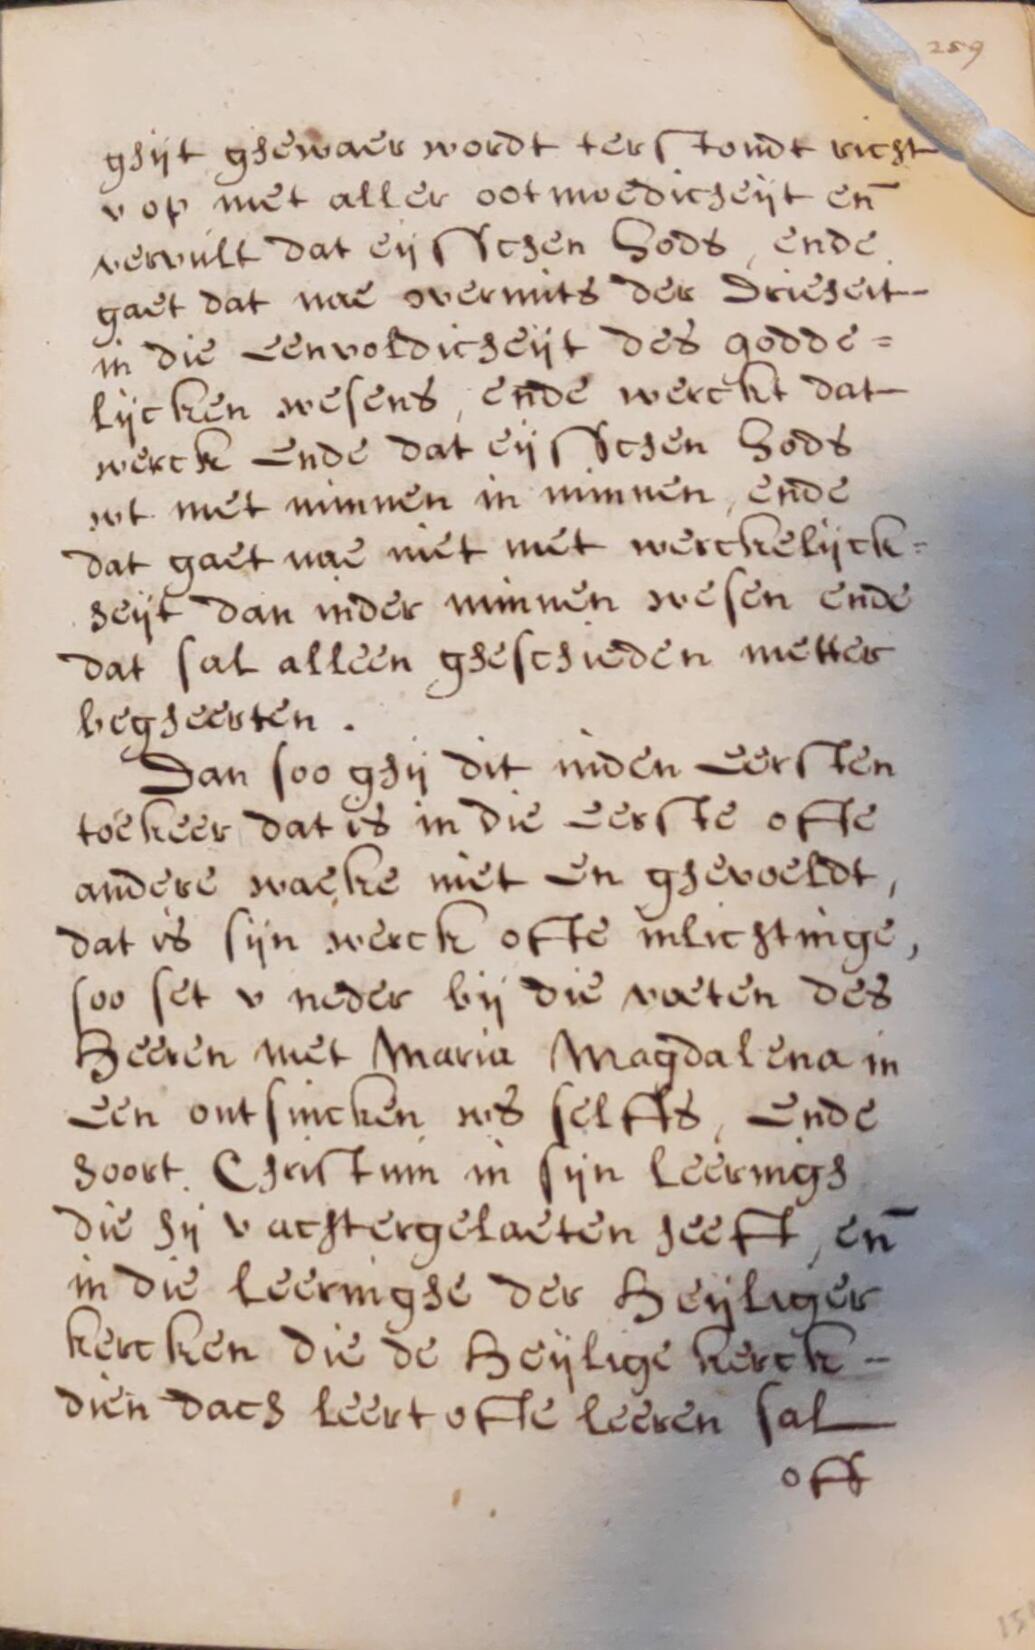 259
ghijt ghewaer wordt terstondt richt
v op met aller ootmoedicheijt en̄
vervult dat eijsschen Gods, ende
gaet dat nae overmits der Drieheit
in die Eenvoldicheijt des godde=
lijcken wesens, ende werckt dat
werck Ende dat eijsschen Gods
wt met minnen in minnen, ende
dat gaet nae niet met werckelijck=
heijt dan inder minnen wesen ende
dat sal alleen gheschieden metter
begheerten.
Dan soo ghij dit inden Eersten
toekeer dat is in die Eerste ofte
andere waeke niet en ghevoeldt,
dat is sijn werck ofte inlichtinge,
soo set v neder bij die voeten des
Heeren met Maria Magdalena in
Een ontsincken ws selffs, Ende
hoort Christum in sijn leeringh
die hij v achtergelaeten heeft, en̄
in die leeringhe der Heijliger
kercken die de Heijlige kerck -
dien dach leert ofte leeren sal
off